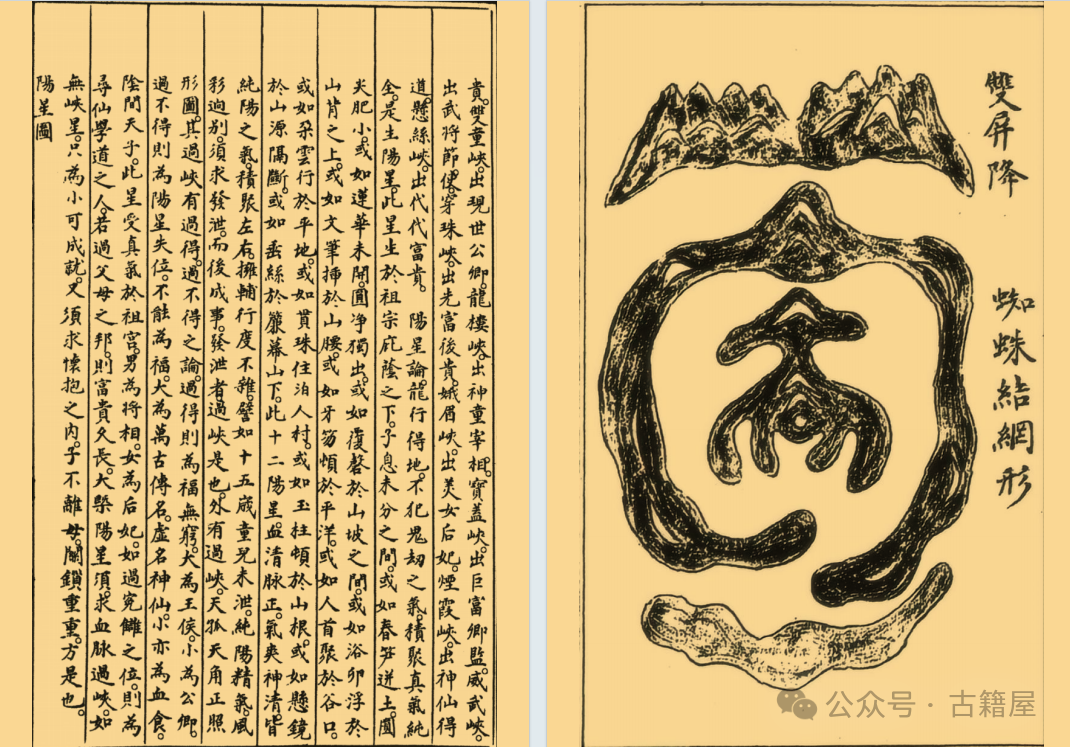 貴。雙童峽。出現世公卿。龍樓峽。出神童宰相。寶蓋峽。出巨富卿監。威武峽。
出武将節使。穿珠峽。出先富後貴。娥眉峽。出美女后妃。煙霞峽。出神仙得
道。懸絲峽。出代代富貴。 陽星論。龍行得地。不犯鬼劫之氣。積聚真氣純
全。是生陽星。此星生於祖宗庇蔭之下。子息未分之間。或如春笋迸土。圓
尖肥小。或如蓮華未開。圓净獨出。或如覆磬於山坡之間。或如浴卵浮於
山背之上。或如文筆挿於山腰。或如牙笏頓於平洋。或如人首聚於谷口。
或如朵雲行於平地。或如貫珠住泊人村。或如玉柱頓於山根。或如懸鏡
於山源隔斷。或如垂絲於簾幕山下。此十二陽星。血清脉正。氣爽神清。皆
純陽之氣。積聚左右。擁輔行度不雜。譬如十五歲童兒未泄。純陽精氣。風
彩逈别。須求發泄。而後成事。發泄者。過峽是也。外有過峽。天狐天角正照
形圖。其過峽有過得。過不得之論。過得則為福無窮。大為王侯。小為公卿。
過不得則為陽星失位。不能為福。大為萬古傳名。虛名神仙。小亦為血食。
陰間天子。此星受真氣於祖宫。男為将相。女為后妃。如過寃讎之位。則為
尋仙學道之人。若過父母之邦。則富貴久長。大槩陽星須。求血脉過峽。如
無峽星。只為小可成就。又須求懷抱之内。子不離母。關鎖重重。方是也。
陽星圖
雙屏降
蜘蛛結網形
公众号·古籍屋